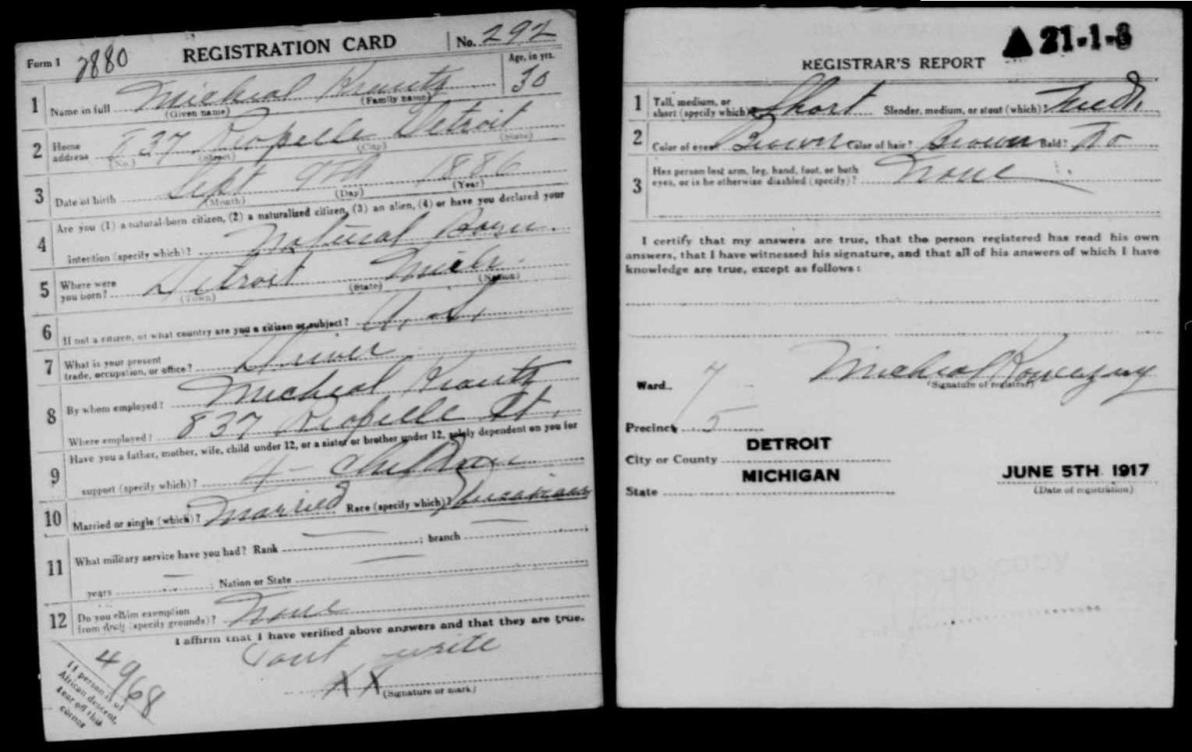 Form 1 2880 REGISTRATION CARD No. 292
Age, in yrs.
1 Name in full Micheal Krantz 30
(Given name) (Family name)
2 Home address 837 Riopelle Detroit
(No.) (Street) (City) (State)
3 Date of birth Sept 9th 1886
(Month) (Day) (Year)
Are you (1) a natural-born citizen, (2) a naturalized citizen, (3) an alien, (4) or have you declared your
4 intention (specify which)? Natural Born
5 Where were you born? Detroit Mich.
(Town) (State) (Nation)
6 If not a citizen, of what country are you a citizen or subject? U. S.
7 What is your present trade, occupation, or office? Driver
8 By whom employed? Micheal Krantz
Where employed? 837 Riopelle St.
Have you a father, mother, wife, child under 12, or a sister or brother under 12, solely dependent on you for
9 support (specify which)? 4 - Children
10 Married or single (which)? Married Race (specify which)?
11 What military service have you had? Rank — ; branch —
years — ; Nation or State —
12 Do you claim exemption from draft (specify grounds)? None
I affirm that I have verified above answers and that they are true.
Cant write
XX
(Signature or mark)
49/68
If person is of
African descent,
tear off this
corner
▲ 21-1-8
REGISTRAR'S REPORT
1 Tall, medium, or short (specify which)? Short Slender, medium, or stout (which)? Med.
2 Color of eyes? Brown Color of hair? Brown Bald? No
3 Has person lost arm, leg, hand, foot, or both eyes, or is he otherwise disabled (specify)? None
I certify that my answers are true, that the person registered has read his own
answers, that I have witnessed his signature, and that all of his answers of which I have
knowledge are true, except as follows:
Micheal
(Signature of registrar)
Ward 7
Precinct 5
City or County DETROIT
State MICHIGAN
JUNE 5TH 1917
(Date of registration)